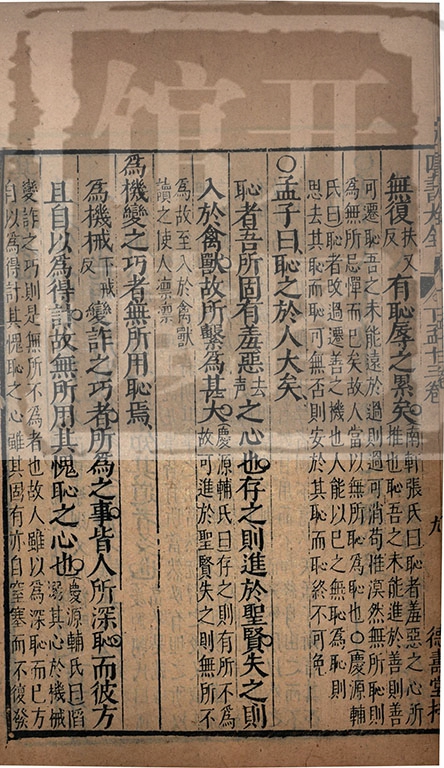 四書大全 下孟十三卷 九 德壽堂梓
無復扶又反有恥辱之累矣南軒張氏曰恥者羞惡之心所推也恥吾之未能進於善則善
可遷恥吾之未能遠於過則過可消苟惟漠然無所恥則
為無所忌憚而已矣故人當以無所恥為恥也○慶源輔
氏曰恥者改過遷善之機也人能以己之無恥為恥則
思去其恥而恥可無否則安於其恥而恥終不可免
○孟子曰恥之於人大矣
恥者吾所固有羞惡去聲之心也存之則進於聖賢失之則
入於禽獸故所繫為甚大慶源輔氏曰存之則有所不為故可進於聖賢失之則無所不
為故至入於禽獸
讀之使人凛凛
為機變之巧者無所用恥焉
為機械下戒反變詐之巧者所為之事皆人所深恥而彼方
且自以為得計故無所用其愧恥之心也慶源輔氏曰慆溺其心於機械
變詐之巧則是無所不為者也故人雖以為深恥而已方
自以為得計其愧恥之心雖其固有亦自窒塞而不復發